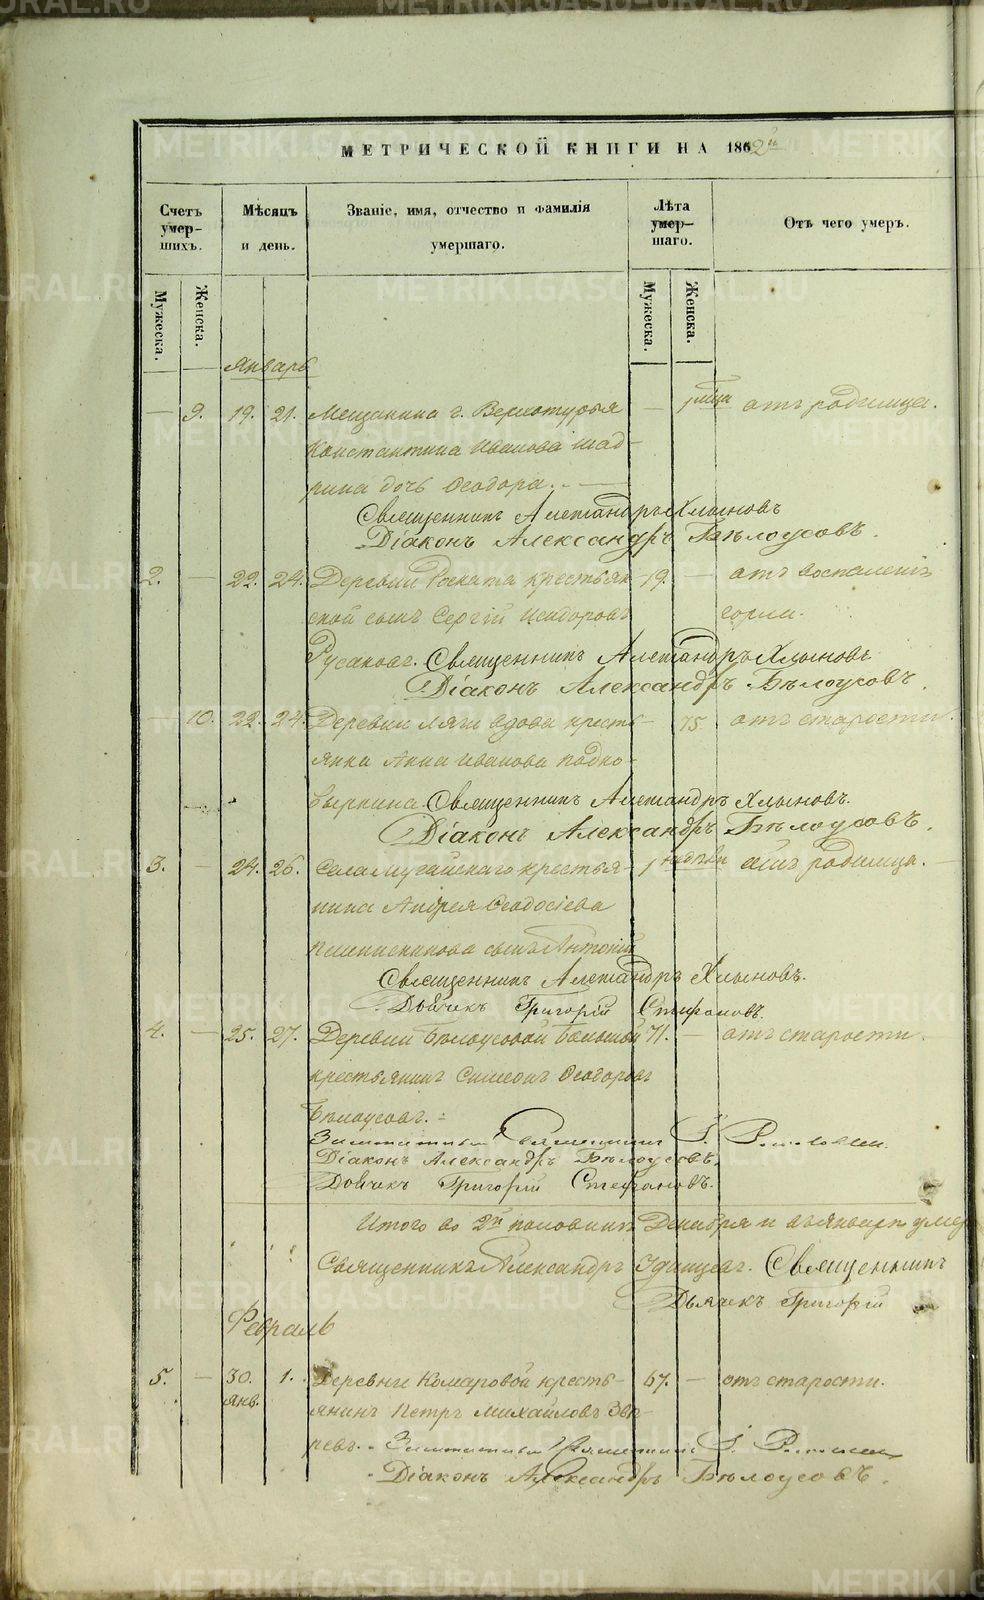 METRIKI.GASO-URAL.RU
МЕТРИЧЕСКОЙ КНИГИ НА 1862й
Счетъ умер–шихъ.
Мѣсяцъ и день.
Званіе, имя, отчество и фамилія умершаго.
Лѣта умер–шаго.
Отъ чего умеръ.
Мужеска.
Женска.
Мужеска.
Женска.
Январь
— 9. 19. 21. Мещанина г. Верхотурья — 1 отъ родимца.
Константина Иванова Шад–
рина дочь Ѳеодора. —
Священникъ Александръ Хлыновъ
Діаконъ Александръ Бѣлоусовъ.
2. — 22. 24. Деревни крестьян– 19. — отъ воспаленія
ской сынъ Сергій Исидоровъ горла.
Русаковъ. Священникъ Александръ Хлыновъ
Діаконъ Александръ Бѣлоусовъ.
— 10. 22. 24. Деревни Ляги вдова кресть– — 75 отъ старости.
янка Анна Иванова Подко–
выркина. Священникъ Александръ Хлыновъ.
Діаконъ Александръ Бѣлоусовъ.
3. — 24. 26. Села Мугайскаго крестья– 1 недѣли отъ родимца. —
нина Андрея Ѳеодосіева
сынъ Антоній
Священникъ Александръ Хлыновъ.
Дьячекъ Григорій Стефановъ.
4. — 25. 27. Деревни Бѣлоусовой Большой 71. — отъ старости.
крестьянинъ Симеонъ Ѳеодоровъ
Бѣлоусовъ. =
Священникъ І.
Діаконъ Александръ Бѣлоусовъ.
Дьячекъ Григорій Стефановъ.
Итого во 2й половинѣ Декабря и въ Январѣ умер
Священникъ Александръ Удинцевъ. Священникъ
Дьячекъ Григорій
Февраль
5. — 30. янв. 1. Деревни Комаровой кресть– 67. — отъ старости.
янинъ Петръ Михайловъ Звѣ–
ревъ. Священникъ І.
Діаконъ Александръ Бѣлоусовъ.